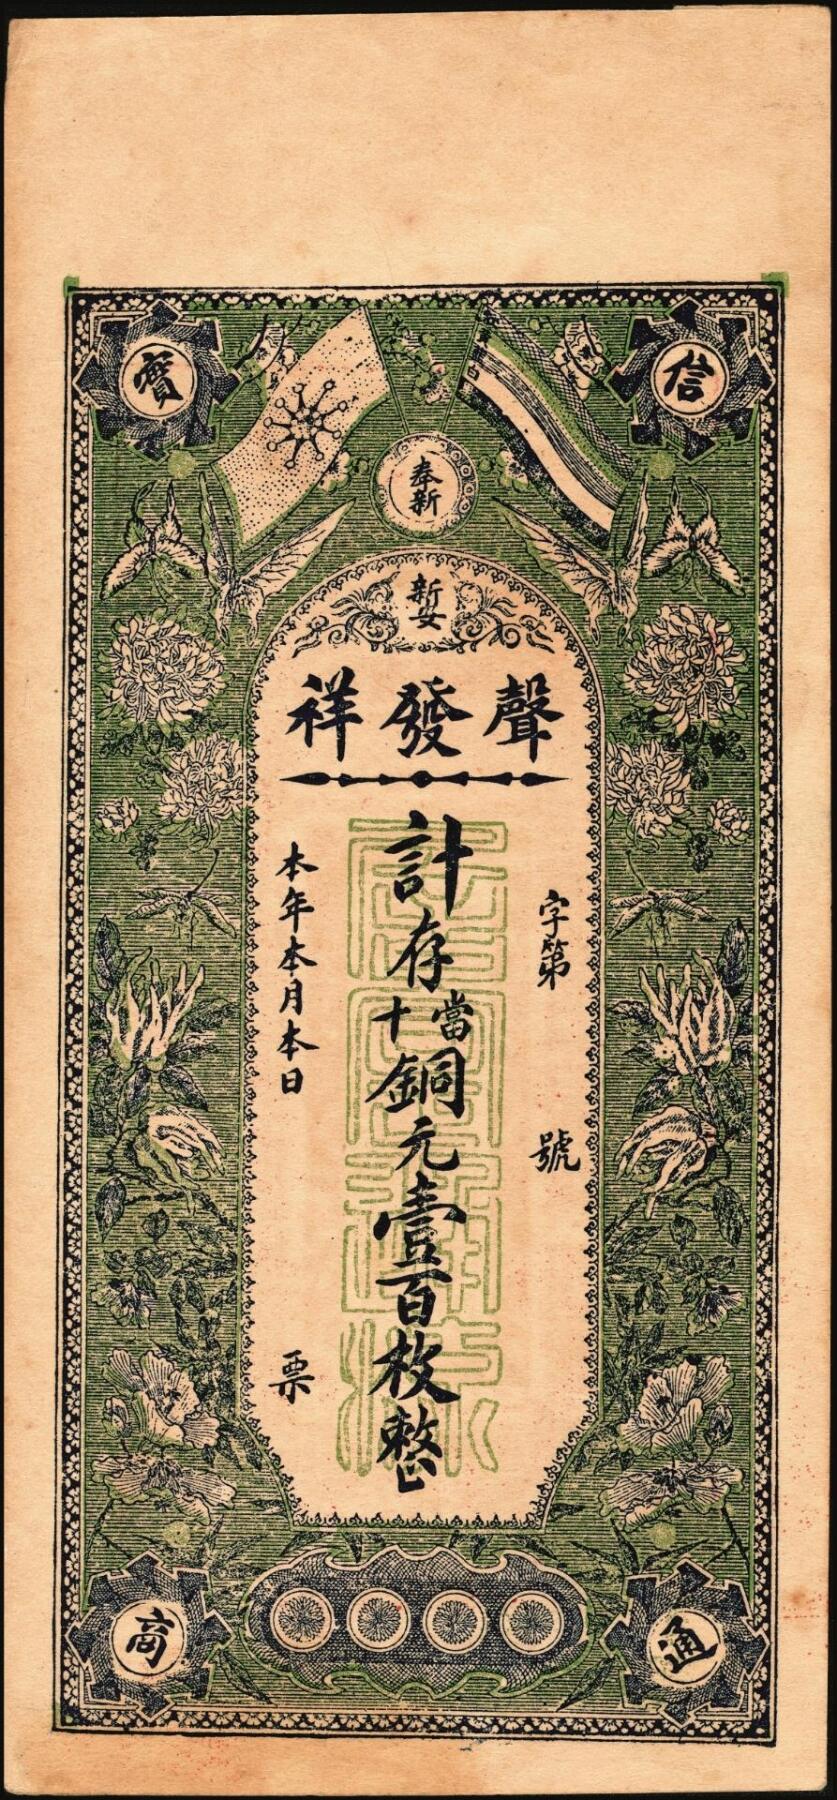 信實
奉新
新安
聲發祥
字第 號
計存當十銅元壹百枚整
本年本月本日 票
通商